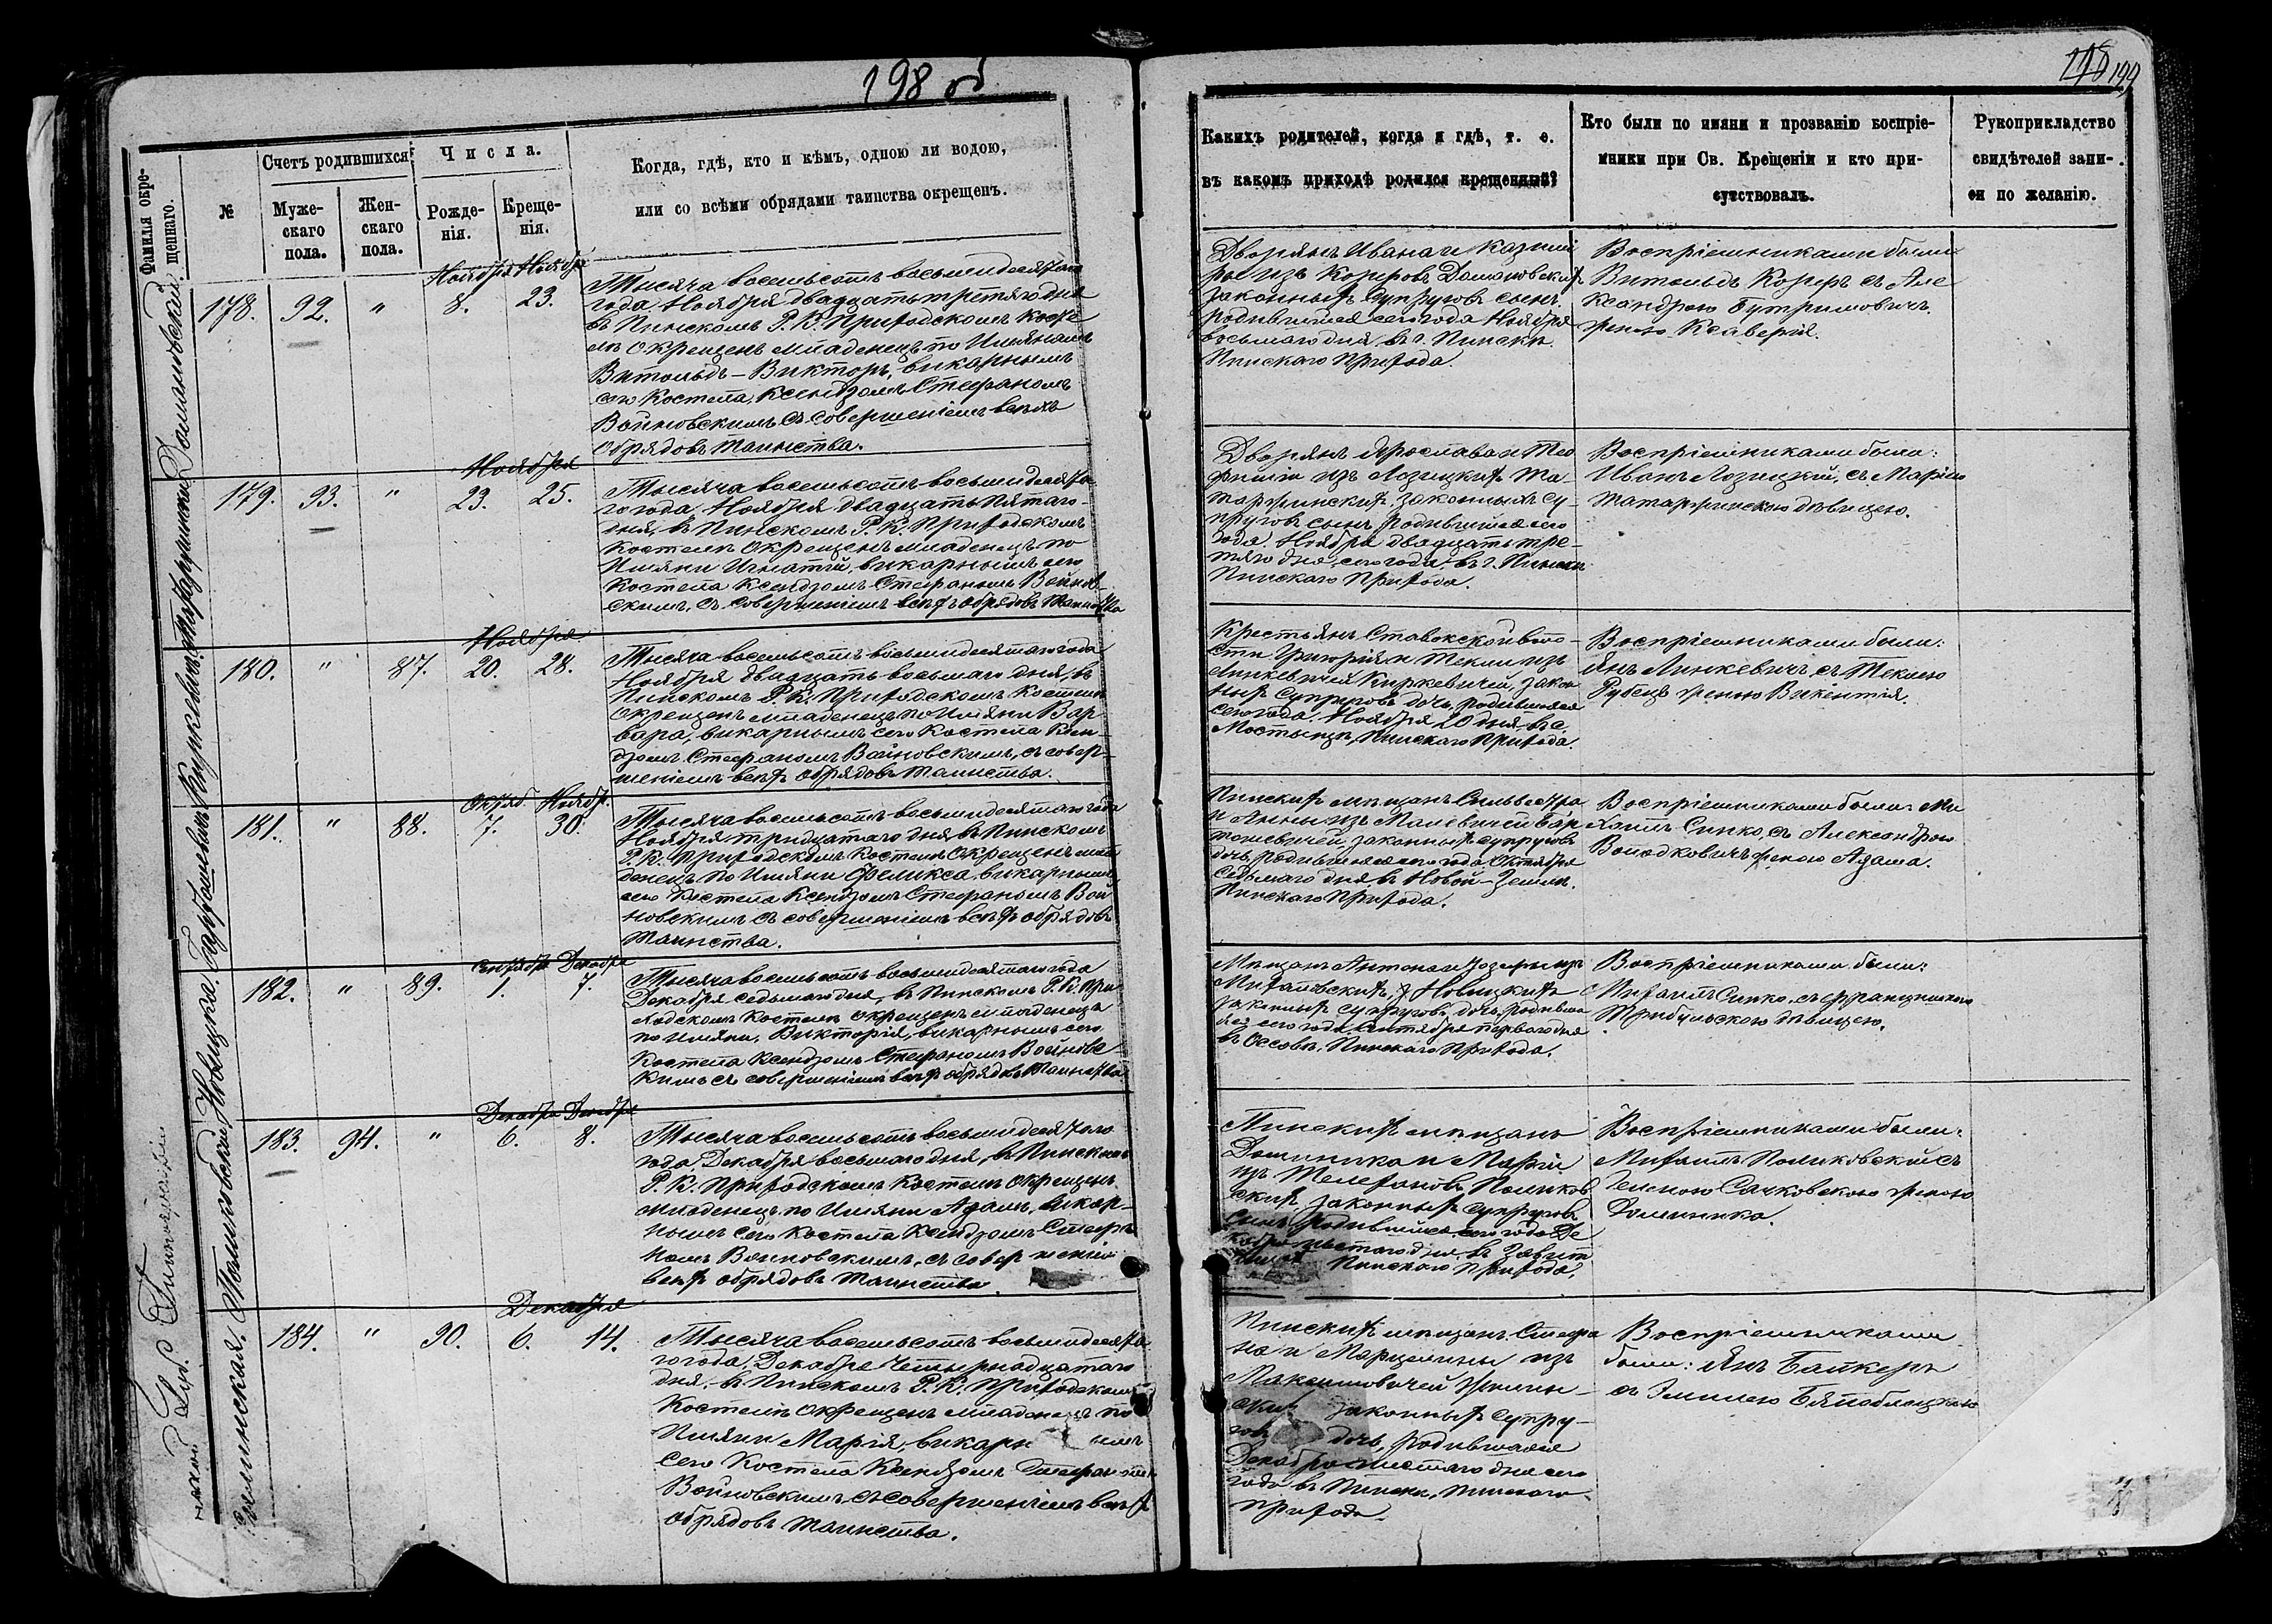 198 об
118 199
Фамилія окре-
щеннаго.
№
Счетъ родившихся
Муже-
скаго
пола.
Жен-
скаго
пола.
Числа.
Рожде-
нія.
Креще-
нія.
Когда, гдѣ, кто и кѣмъ, одною ли водою,
или со всѣми обрядами таинства окрещенъ.
Какихъ родителей, когда и гдѣ, т. е.
въ какомъ приходѣ родился крещенный?
Кто были по имяни и прозванію воспріе-
мники при Св. Крещеніи и кто при-
сутствовалъ.
Рукоприкладство
свидѣтелей запи-
си по желанію.
Домановскій
178. 92. " Ноября 8. Ноября 23.
Тысяча восемьсотъ восьмидесятаго
года Ноября двадцать третяго дня
въ Пинскомъ Р. К. Приходскомъ Косте
лѣ окрещенъ младенецъ по Имянамъ
Витольдъ-Викторъ, викарнымъ
сего Костела, Ксендзомъ Стефаномъ
Войновскимъ съ совершеніемъ всѣхъ
обрядовъ таинства.
Дворянъ Ивана и Казими
ры изъ Корсровъ Домановскихъ
законныхъ супруговъ сынъ.
родившійся сего года Ноября
восьмаго дня въ г. Пинскѣ
Пинскаго Прихода.
Воспріемниками были
Витольдъ съ Але
ксандрою Бутримовичъ
женою Ксаверія.
179. 93. " Ноября 23. 25.
Тысяча восемьсотъ восьмидеся
того года Ноября двадцать пятаго
дня, въ Пинскомъ Р. К. Приходскомъ
Костелѣ окрещенъ младенецъ по
Имяни Игнатій, викарнымъ сего
Костела Ксендзомъ Стефаномъ Войнов-
скимъ, съ совершеніемъ всѣхъ обрядовъ таинства
Дворянъ Ярослава и Тео
филіи изъ Лозицкихъ Та-
законныхъ су-
пруговъ сынъ родившійся сего
года Ноября двадцать тре-
тяго дня, сего года, въ г. Пинскѣ
Пинскаго Прихода.
Воспріемниками были:
Иванъ Лозицкій, съ Маріею
дѣвицею.
Киркевичъ
180. " 87. Ноября 20. 28.
Тысяча восемьсотъ восьмидесятаго года
Ноября двадцать восьмаго дня, въ
Пинскомъ Р. К. Приходскомъ Костелѣ
окрещенъ младенецъ по Имяни Вар
вара, викарнымъ сего Костела Ксен-
дзомъ Стефаномъ Войновскимъ, съ совер-
шеніемъ всѣхъ обрядовъ таинства.
Крестьянъ Ставокской воло-
сти Григорія и Теклы изъ
Линкевичей Киркевичей, закон
ныхъ супруговъ дочь, родившаяся
сего года Ноября 20 дня въ с.
Мостыцѣ, Пинскаго Прихода.
Воспріемниками были:
Янъ Линкевичъ, съ Теклею
Рубецъ женою Викентія.
181. " 88. Октяб. 7. Ноябр. 30.
Тысяча восемьсотъ восьмидесятаго года
Ноября тридцатаго дня въ Пинскомъ
Р. К. Приходскомъ Костелѣ окрещенъ мла
денецъ по Имяни Феликса викарнымъ
сего Костела Ксендзомъ Стефаномъ Вой
новскимъ съ совершеніемъ всѣхъ обрядовъ
таинства.
Пинскихъ мѣщанъ Сильвестра
и Анны изъ Малевичей Бар
законныхъ супруговъ
дочь, родившаяся сего года Октября
седьмаго дня въ Новой-Землѣ.
Пинскаго Прихода.
Воспріемниками были: Ми
хаилъ Сипко, съ Александрою
женою Адама.
Новицка.
182. " 89. Сентября 1. Декабря 7.
Тысяча восемьсотъ восьмидесятаго года
Декабря седьмаго дня, въ Пинскомъ Р. К. При
ходскомъ Костелѣ окрещенъ младенецъ
по Имяни, Викторія, викарнымъ сего
Костела Ксендзомъ Стефаномъ Войновс-
кимъ съ совершеніемъ всѣхъ обрядовъ таинства
Мѣщанъ Антона и Юзефы изъ
Новицкихъ
законныхъ супруговъ, дочь, родивша
яся сего года Сентября перваго дня
въ Оссовѣ, Пинскаго Прихода.
Воспріемниками были:
Михаилъ Сипко, съ Францишкою
дѣвицею.
183. 94. " Декабря 6. Декабря 8.
Тысяча восемьсотъ восьмидесятаго
года, Декабря восьмаго дня, въ Пинскомъ
Р. К. Приходскомъ Костелѣ окрещенъ
младенецъ по Имяни Адамъ, викар-
нымъ сего Костела Ксендзомъ Стефа
номъ Войновскимъ, съ совершеніемъ
всѣхъ обрядовъ таинства.
Пинскихъ мѣщанъ
Доминика и Маріи
изъ
законныхъ супруговъ
сынъ, родившійся сего года Де
кабря шестаго дня въ
Пинскаго Прихода.
Воспріемниками были:
Михаилъ съ
Еленою Сачковскою женою
Доминика.
184. " 90. Декабря 6. 14.
Тысяча восемьсотъ восьмидеся
того года, Декабря четырнадцатаго
дня, въ Пинскомъ Р. К. Приходскомъ
Костелѣ окрещенъ младенецъ по
Имяни Марія, викарнымъ
сего Костела Ксендзомъ Стефаномъ
Войновскимъ съ совершеніемъ всѣхъ
обрядовъ таинства.
Пинскихъ мѣщанъ Стефа
на и Марцелины изъ
Максимовичей
законныхъ супру-
говъ дочь, родившаяся
Декабря шестаго дня сего
года въ Пинскѣ, Пинскаго
прихода.
Воспріемниками
были: Янъ
съ Эмилею